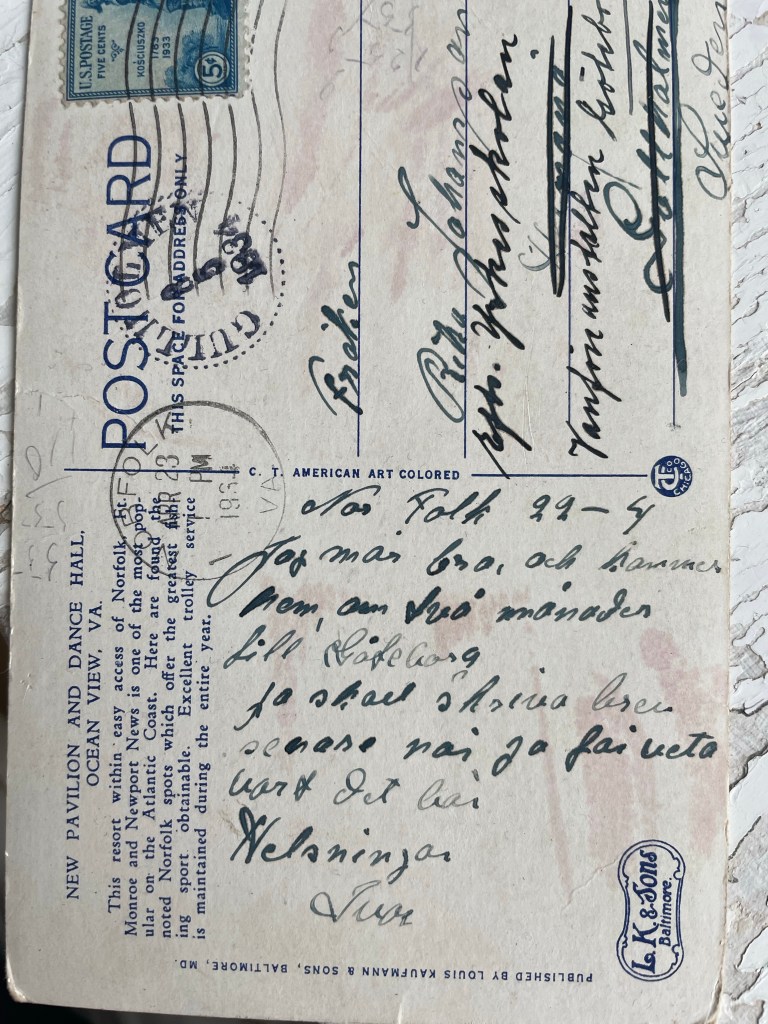 U.S. POSTAGE
FIVE CENTS
KOSCIUSZKO
1783
1933
5¢
POST CARD
THIS SPACE FOR ADDRESS ONLY
1934
NORFOLK
APR 23
PM
1934
VA
Fröken
Rita Johanson
Yrkesskolan
Vanföreanstalten Götebo
Sweden
C. T. AMERICAN ART COLORED
CHICAGO
NEW PAVILION AND DANCE HALL,
OCEAN VIEW, VA.
This resort within easy access of Norfolk, Ft.
Monroe and Newport News is one of the most pop-
ular on the Atlantic Coast. Here are found the
noted Norfolk spots which offer the greatest fish-
ing sport obtainable. Excellent trolley service
is maintained during the entire year.
Nor Folk 22-4
Jag mår bra, och kommer
hem, om två månader
till Göteborg
ja skael skriva brev
senare när ja fai veta
vart det bär
Helsningar
Ivar
PUBLISHED BY LOUIS KAUFMANN & SONS, BALTIMORE, MD.
L. K. & Sons
Baltimore.